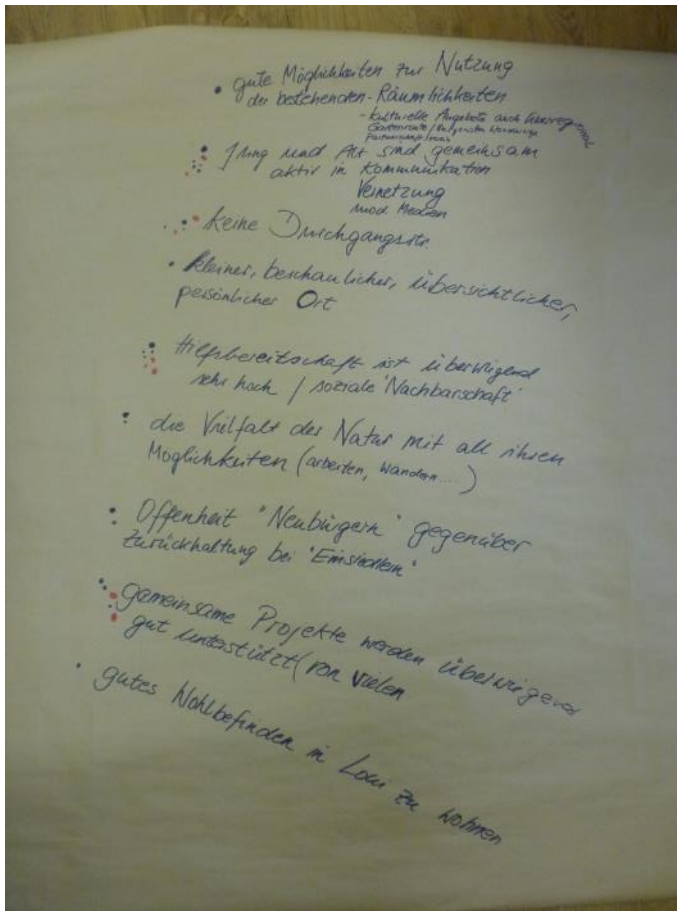 • gute Möglichkeiten zur Nutzung
der bestehenden Räumlichkeiten
- kulturelle Angebote auch
Jung und Alt sind gemeinsam
aktiv in Kommunikation
Vernetzung
mod. Medien
• keine Durchgangsstr.
• kleiner, beschaulicher, übersichtlicher,
persönlicher Ort
• Hilfsbereitschaft ist überwiegend
sehr hoch / soziale "Nachbarschaft"
• die Vielfalt der Natur mit all ihren
Möglichkeiten (arbeiten, wandern....)
• Offenheit "Neubürgern" gegenüber
Zurückhaltung bei "Einsiedlern"
• gemeinsame Projekte werden überwiegend
gut unterstützt (von vielen
• gutes Wohlbefinden in zu wohnen